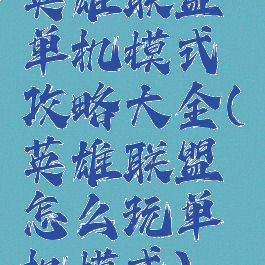 英雄联盟
单机模式
攻略大全(
英雄联盟
怎么玩单
机模式)